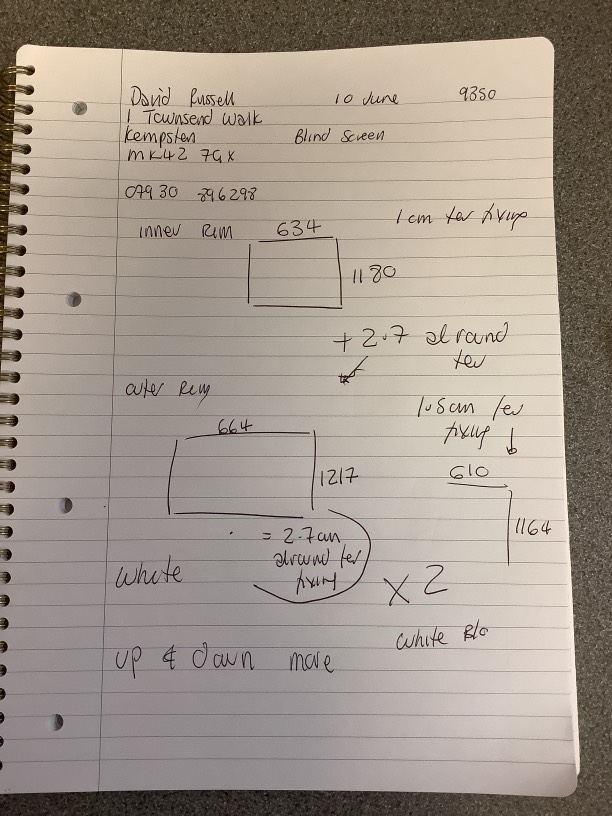 David Russell 10 June 9350
1 Townsend Walk
Kempsten Blind Screen
MK42 7GX
07930 896298
inner Rim 634 1cm for fixing
1180
+ 2.7 around
for
outer Rim
1.5cm for
fixing
664
610
1217
1164
= 2.7cm
around for
fixing
White
X 2
White Blo
up & down more